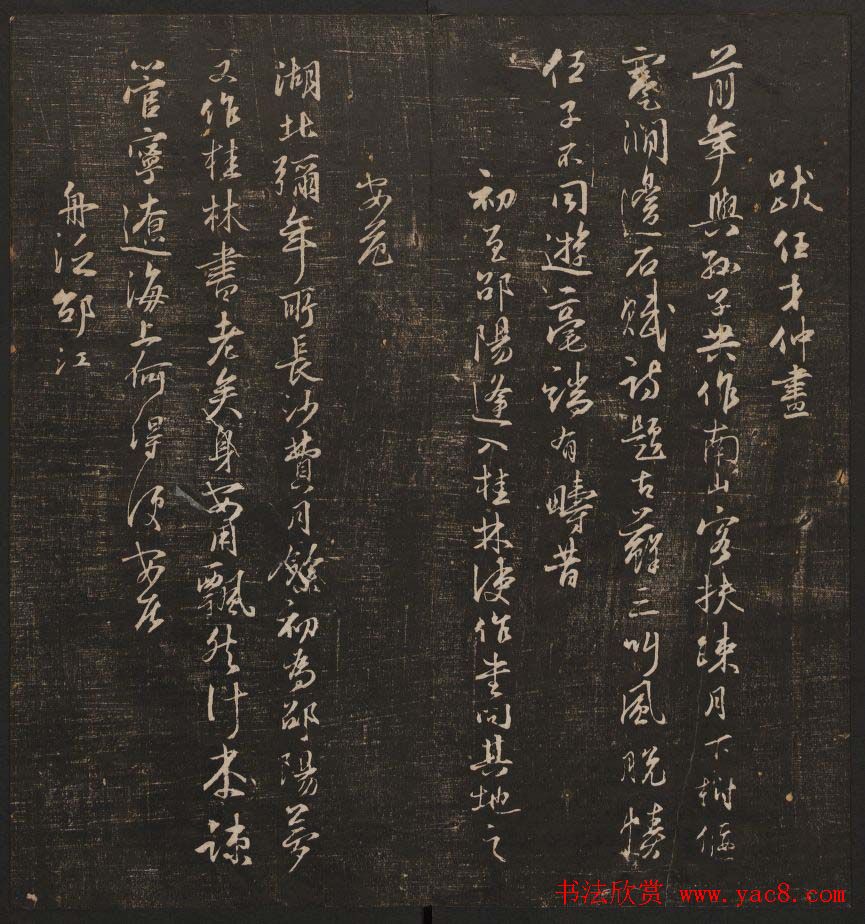 跋任才仲畫
前年與孫子共作南山客扶疎月下樹偃
蹇澗邊石賦詩題古蘚三叫風脫幘
任子不同遊毫端有疇昔
初至邵陽逢入桂林使作書問其地之
安危
湖北彌年所長沙費月餘初為邵陽夢
又作桂林書老矣身安用飄然計本疎
管寧遼海上何得便安居
舟泛邵江
书法欣赏 www.yac8.com